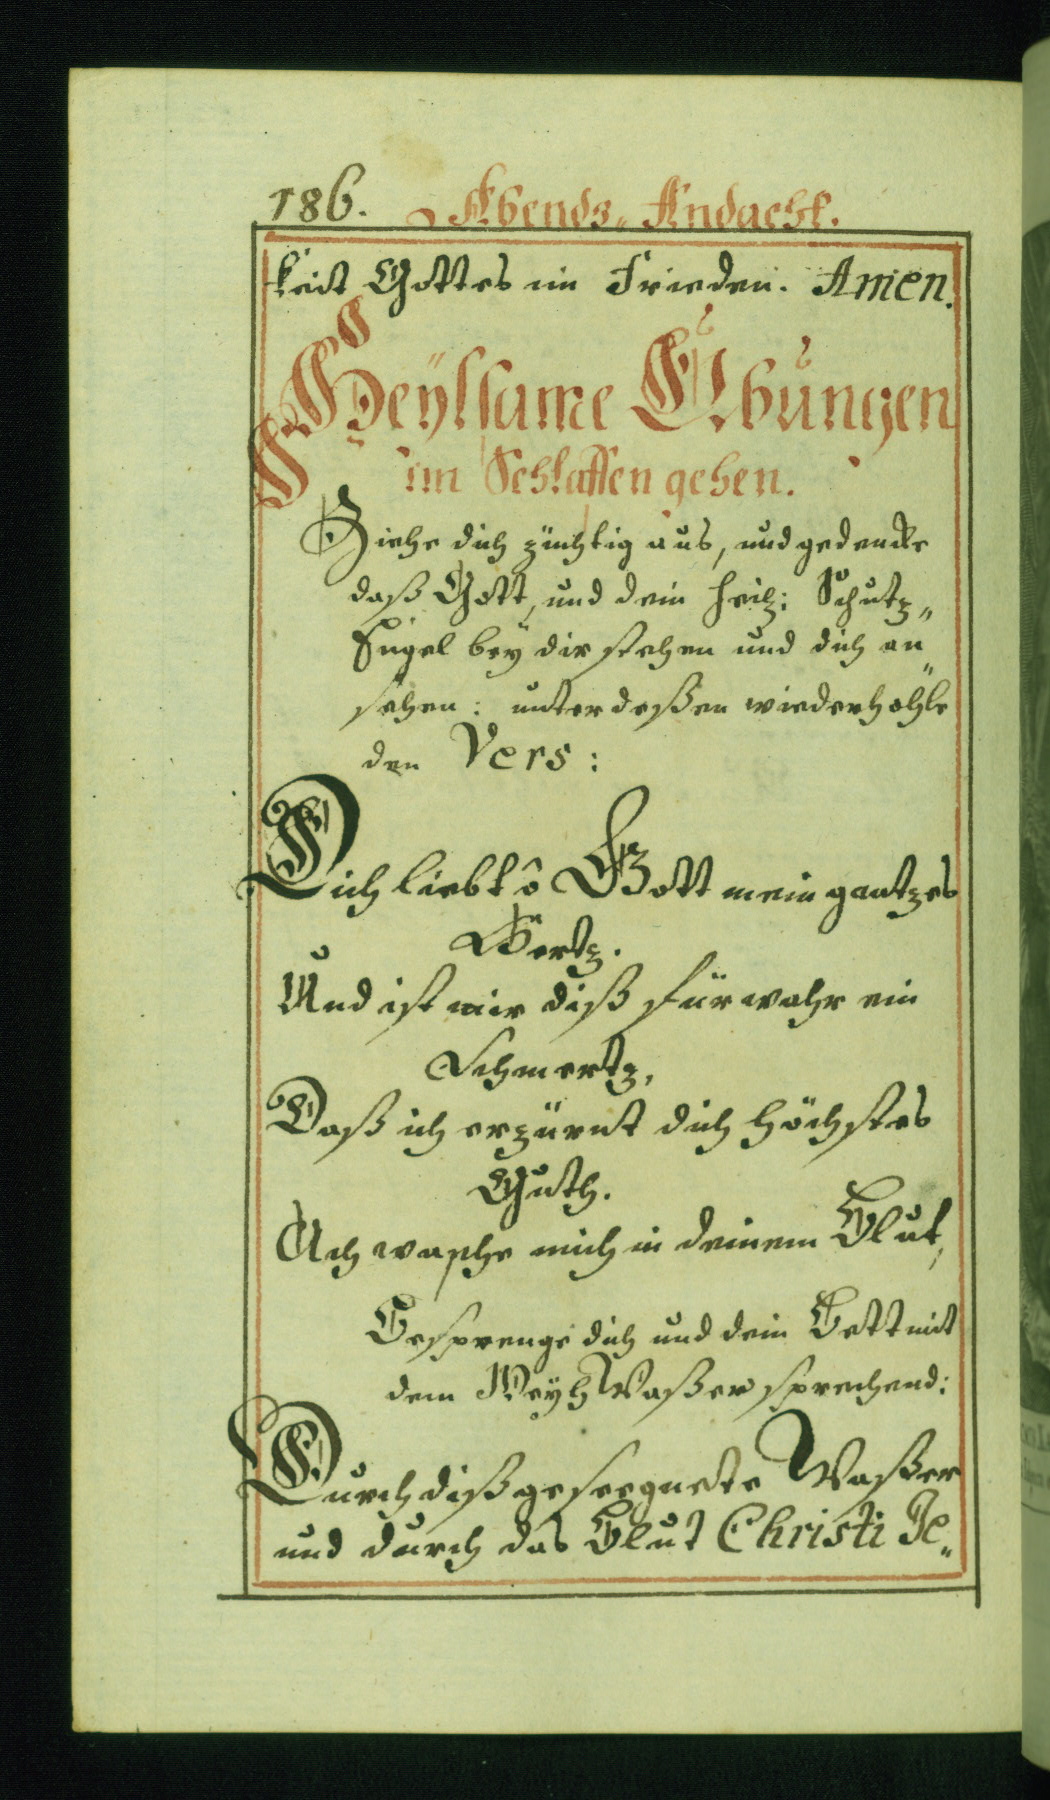 186. Abends-Andacht.
keit Gottes im Frieden. Amen.
Heylsame Übungen
im Schlaffen gehen.
Ziehe dich züchtig aus, und gedencke
daß Gott, und dein heilg: Schutz„
Engel bey dir stehen und dich an„
sehen: unterdeßen wiederhohle
den Vers:
Dich liebt ô Gott mein gantzes
Hertz.
Und ist mir diß für wahr ein
Schmertz,
Daß ich erzürnt dich höchstes
Guth.
Ach wasche mich in deinem Blut,
Besprenge dich und dein Bett mit
dem Weyh Waßer sprechend:
Durch diß geseegnete Waßer
und durch das Blut Christi Je„